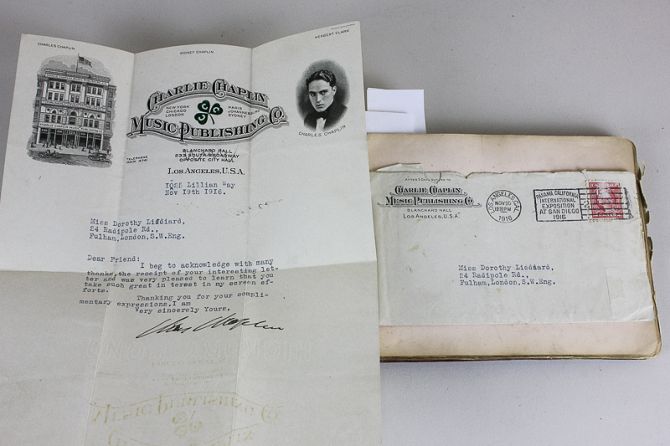 CHARLES CHAPLIN
SIDNEY CHAPLIN
HERBERT CLARK
CHARLIE CHAPLIN
NEW YORK
CHICAGO
LONDON
PARIS
SYDNEY
MUSIC PUBLISHING CO.
CHARLES CHAPLIN
BLANCHARD HALL
233 SOUTH BROADWAY
OPPOSITE CITY HALL
LOS ANGELES, U.S.A.
TELEPHONE
Lillian Way
Nov 19th 1916.
Miss Dorothy Liddiard,
54 Radipole Rd.
Fulham,London,S.W.Eng.
Dear Friend:
I beg to acknowledge with many
thanks,the receipt of your interesting let-
ter and was very pleased to learn that you
take such great in terest in my screen ef-
forts.
Thanking you for your compli-
mentary expressions,I am
Very sincerely Yours,
Chas Chaplin
CHARLIE CHAPLIN
MUSIC PUBLISHING CO.
BLANCHARD HALL
LOS ANGELES, U.S.A.
LOS ANGELES, CAL.
NOV 20
1916
PANAMA CALIFORNIA
INTERNATIONAL
EXPOSITION
AT SAN DIEGO
1916
Miss Dorothy Liddiard,
54 Radipole Rd.,
Fulham,London,S.W.Eng.